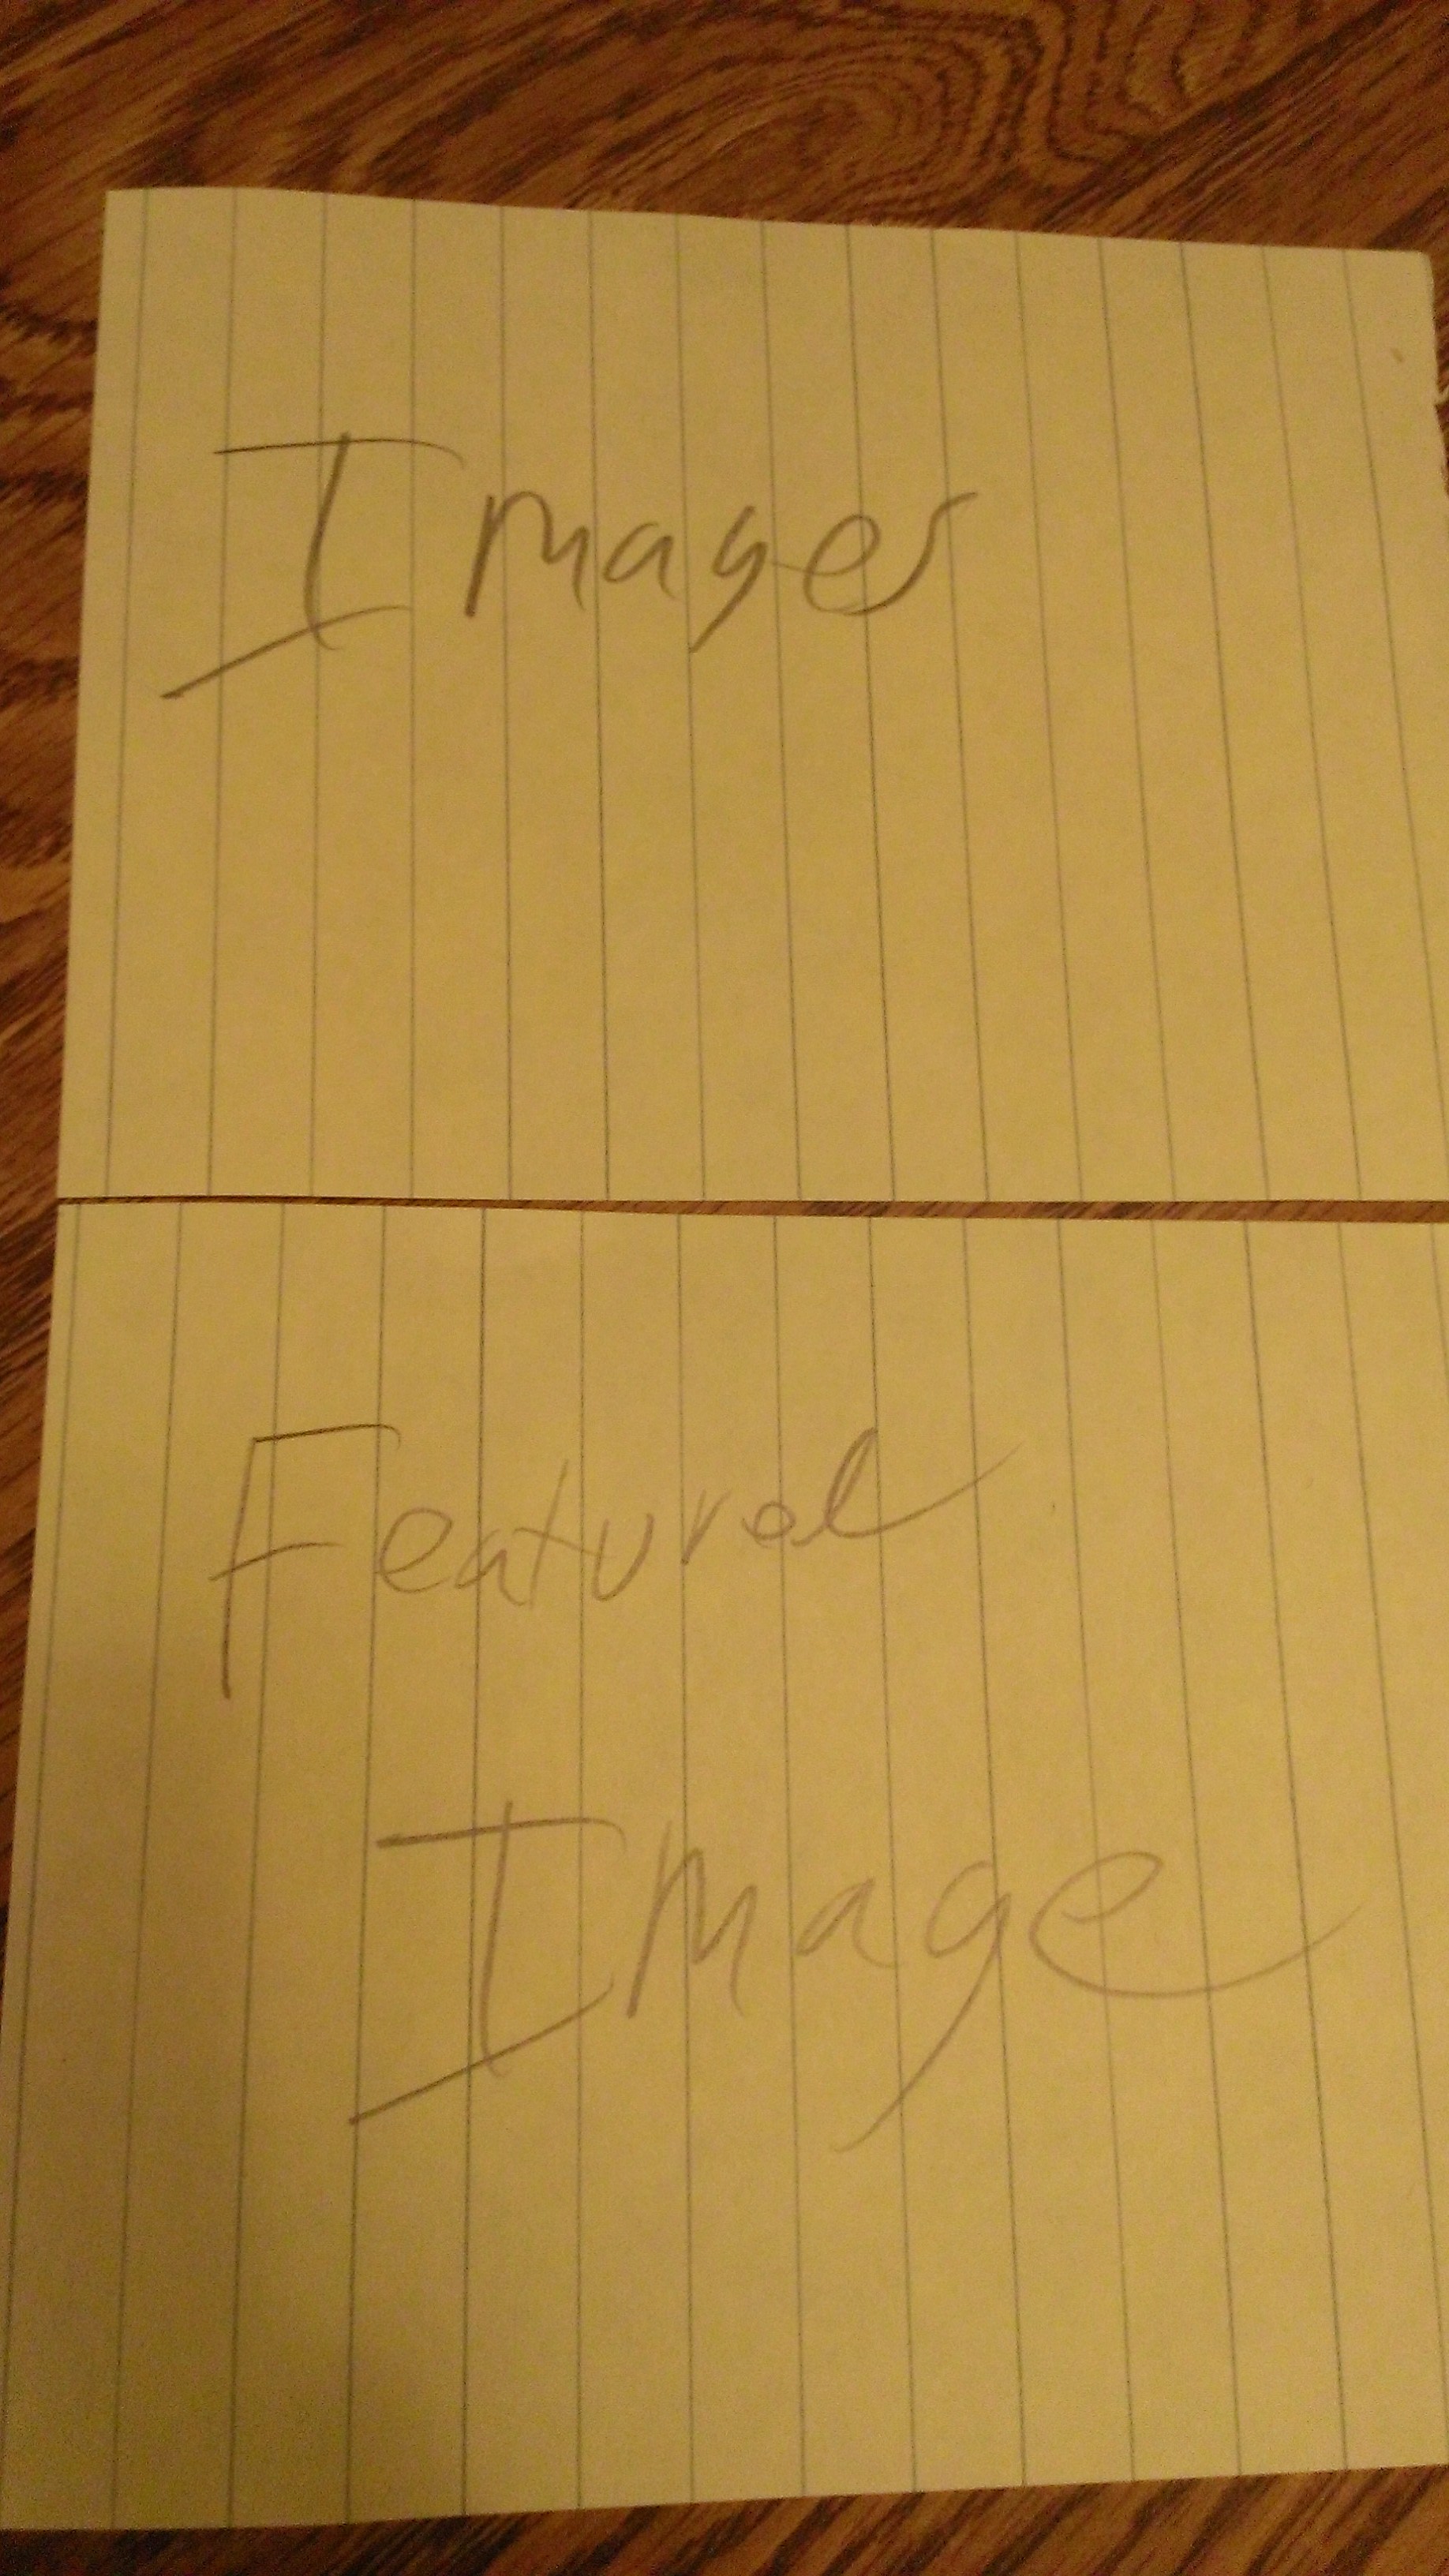 Images
Featured
Image